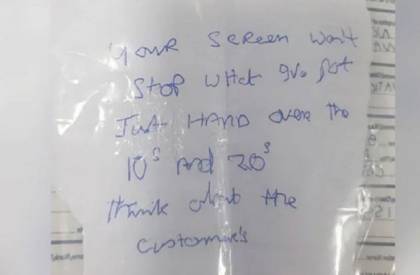 your screen won't
stop what I've got
Just HAND over the
10s AND 20s
think about the
customer's